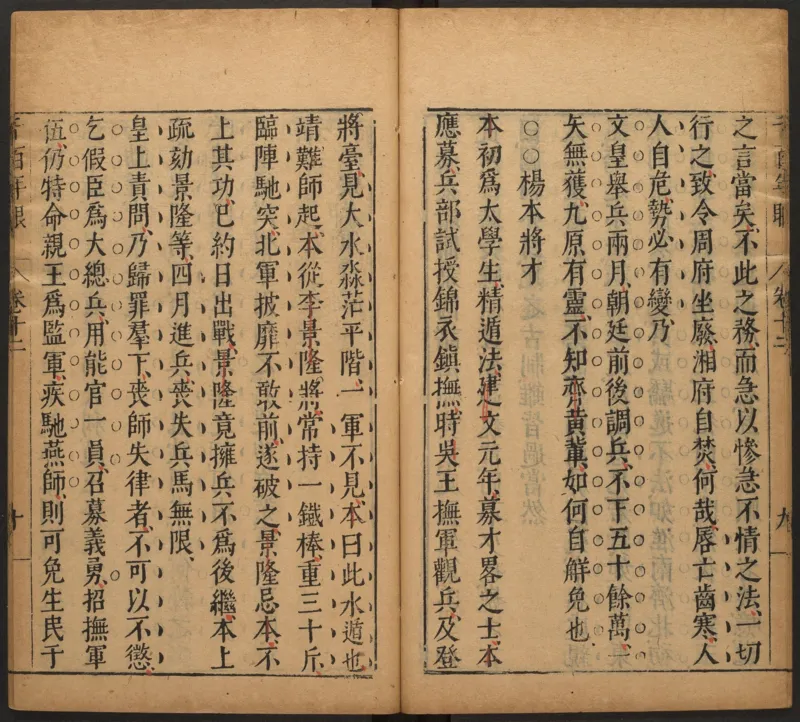 之言當矣不此之務而急以慘急不情之法一切
行之致令周府坐廢湘府自焚何哉唇亡齒寒人
人自危勢必有變乃
文皇舉兵兩月朝廷前後調兵不下五十餘萬一
矢無獲九原有靈不知齊黃軰如何自觧免也
○○楊本將才
本初爲太學生精遁法建文元年募才畧之士本
應募兵部試授錦衣鎮撫時吳王撫軍觀兵及登
卷十二
九
將臺見大水淼茫平階一軍不見本曰此水遁也
靖難師起本從李景隆將常持一鐵棒重三十斤
臨陣馳突北軍披靡不敢前遂破之景隆忌本不
上其功巳約日出戰景隆竟擁兵不爲後繼本上
疏劾景隆等四月進兵喪失兵馬無限
皇上責問乃歸罪羣下喪師失律者不可以不懲
乞假臣爲大總兵用能官一員召募義勇招撫軍
伍仍特命親王爲監軍疾馳燕師則可免生民于
卷十二
十